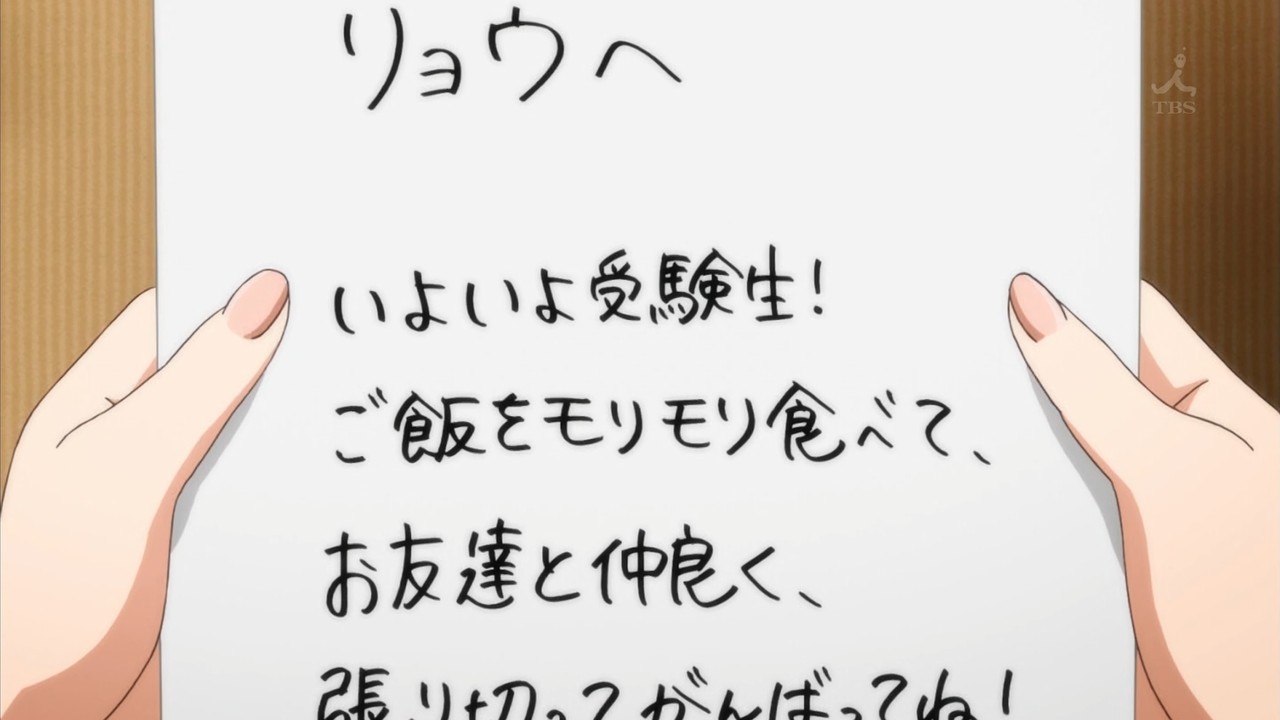 リョウへ
TBS
いよいよ受験生!
ご飯をモリモリ食べて、
お友達と仲良く、
張り切ってがんばってね!